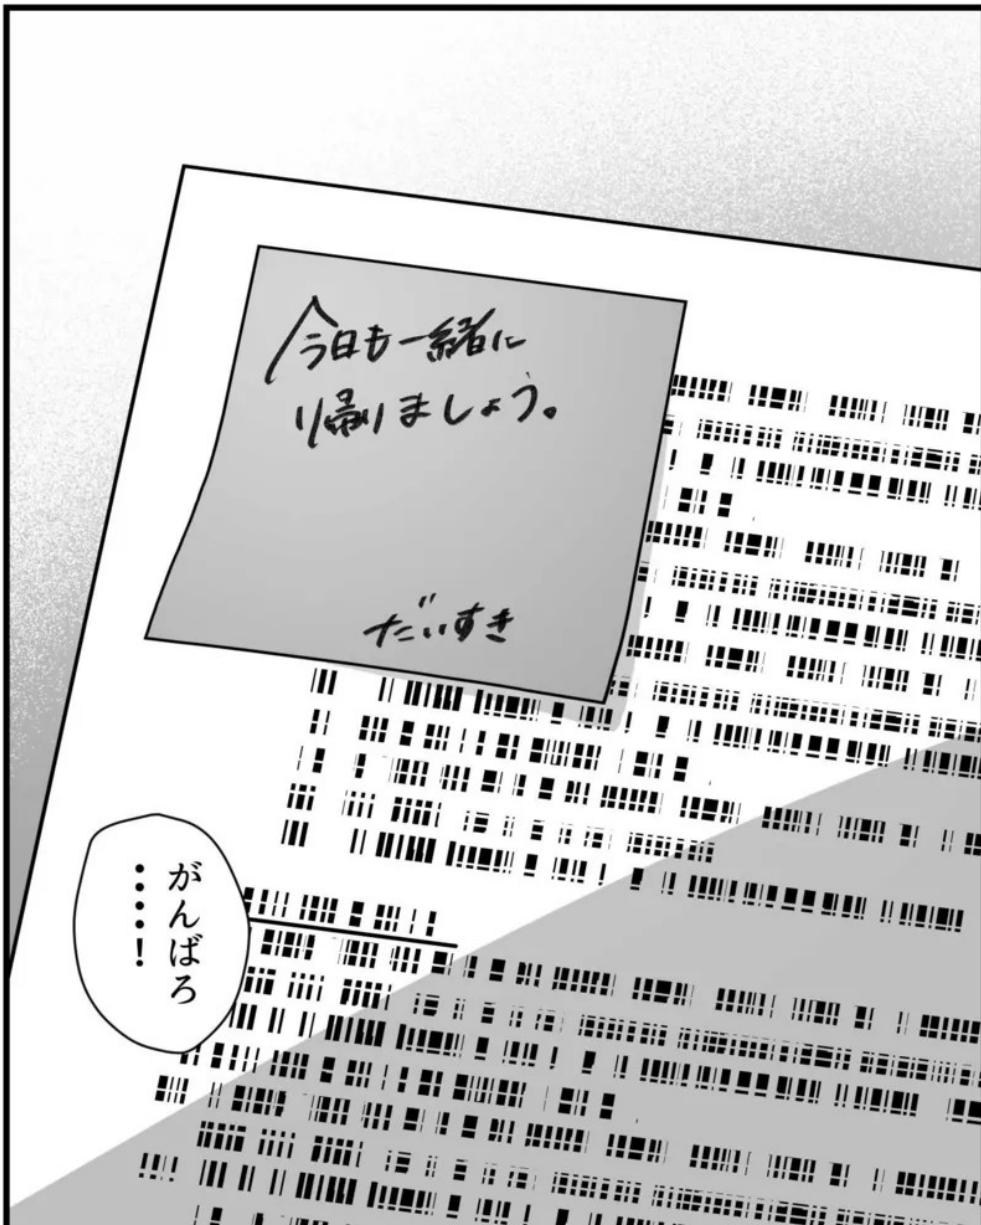 今日も一緒に
帰りましょう。
だいすき
がんばろ
……!